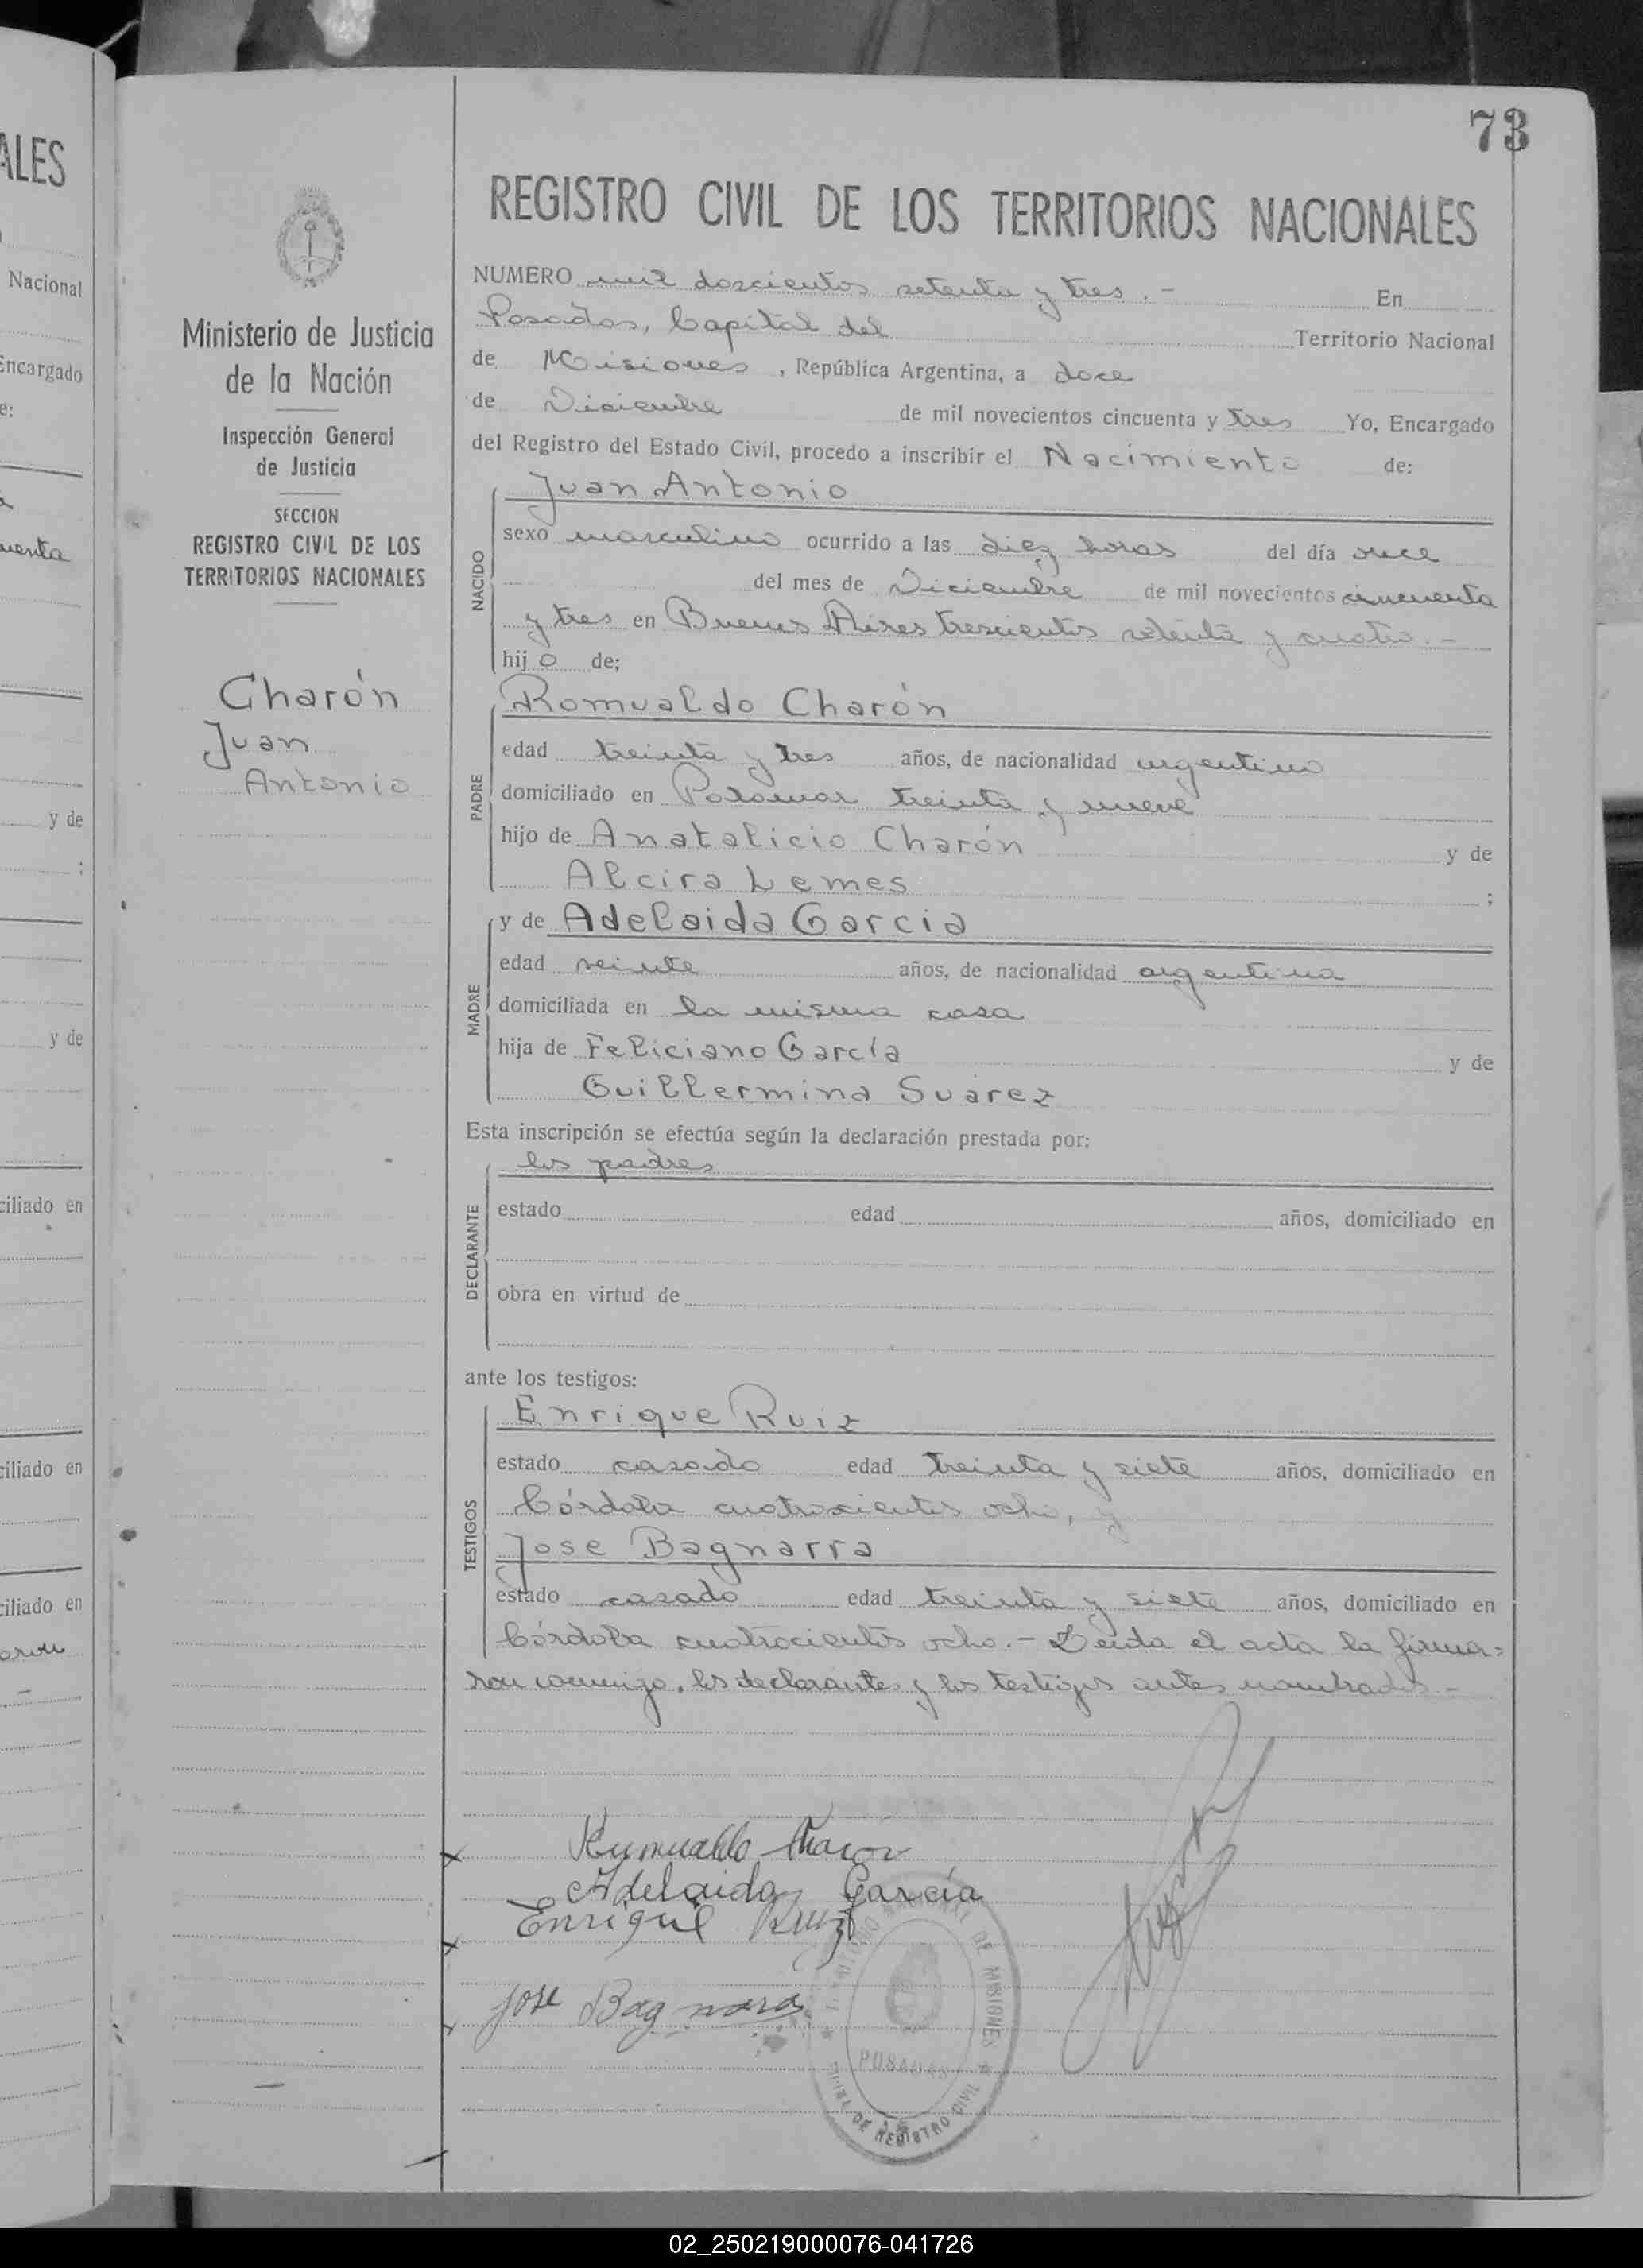 73
ALES
Nacional
Encargado
e:
uenta
y de
;
y de
ciliado en
ciliado en
ciliado en
Ministerio de Justicia
de la Nación
Inspección General
de Justicia
SECCION
REGISTRO CIVIL DE LOS
TERRITORIOS NACIONALES
Charón
Juan
Antonio
REGISTRO CIVIL DE LOS TERRITORIOS NACIONALES
NUMERO mil doscientos setenta y tres.- En
Posadas, Capital del Territorio Nacional
de Misiones, República Argentina, a doce
de Diciembre de mil novecientos cincuenta y tres Yo, Encargado
del Registro del Estado Civil, procedo a inscribir el Nacimiento de:
Juan Antonio
NACIDO
sexo masculino ocurrido a las diez horas del día once
del mes de Diciembre de mil novecientos cincuenta
y tres en Buenos Aires trescientos setenta y cuatro.-
hijo de;
Romualdo Charón
PADRE
edad treinta y tres años, de nacionalidad argentino
domiciliado en Palomar treinta y nueve
hijo de Anatalicio Charón y de
Alcira Lemes ;
y de Adelaida Garcia
MADRE
edad veinte años, de nacionalidad argentina
domiciliada en la misma casa
hija de Feliciano García y de
Guillermina Suarez
Esta inscripción se efectúa según la declaración prestada por:
los padres
DECLARANTE
estado edad años, domiciliado en
obra en virtud de
ante los testigos:
Enrique Ruiz
TESTIGOS
estado casado edad treinta y siete años, domiciliado en
Córdoba cuatrocientos ocho, y
Jose Bagnarra
estado casado edad treinta y siete años, domiciliado en
Córdoba cuatrocientos ocho.- Leida el acta la firma=
ron conmigo, los declarantes y los testigos antes nombrados.-
Rumualdo Charon
Adelaida García
Enrique Ruiz
Jose Bagnara
NACIONAL DE MISIONES
POSADAS
DE REGISTRO CIVIL
02_250219000076-041726